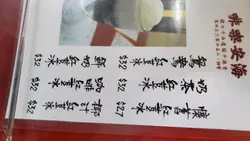 海安樂味
鴛鴦紅豆冰 $32
鮮奶紅豆冰 $32
奶茶紅豆冰 $32
咖啡紅豆冰 $32
懷舊紅豆冰 $27
椰汁紅豆冰 $32